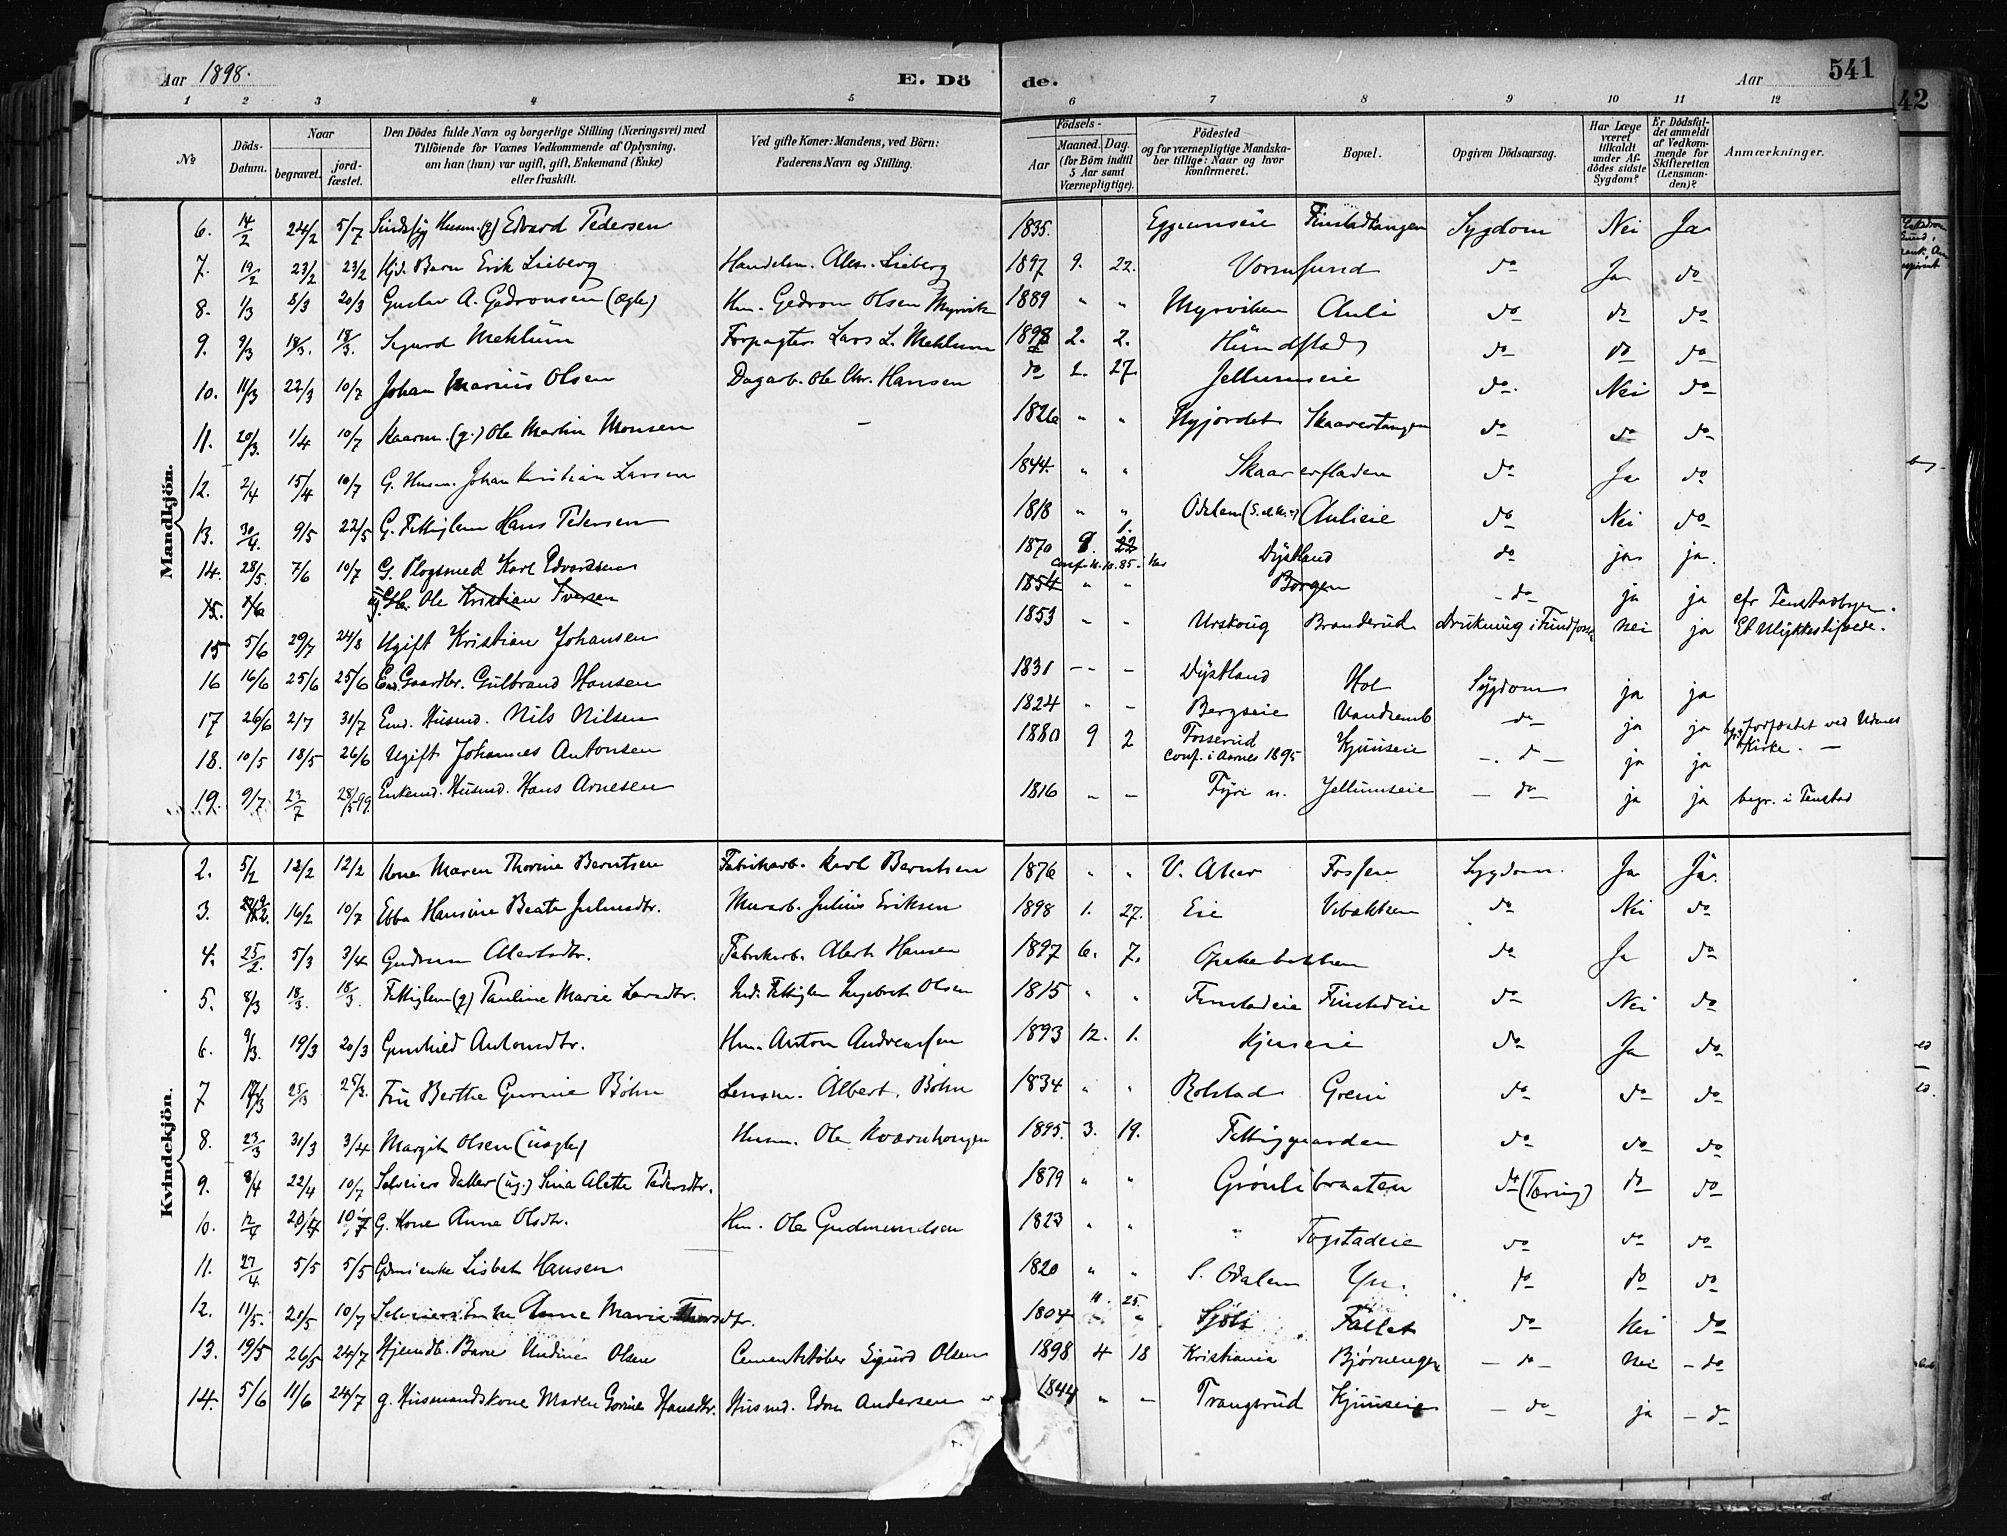 Aar 1898.
E. Dö
de.
Aar
541
42
1 2 3 4 5 6 7 8 9 10 11 12
№
Döds-Datum.
Naar
begravet.
jord-fæstet.
Den Dödes fulde Navn og borgerlige Stilling (Næringsvei) med Tilföiende for Voxnes Vedkommende af Oplysning, om han (hun) var ugift, gift, Enkemand (Enke) eller fraskilt.
Ved gifte Koner: Mandens, ved Börn: Faderens Navn og Stilling.
Födsels-
Aar
Maaned. Dag.
(for Börn indtil 5 Aar samt Værnepligtige).
Födested og for værnepligtige Mandskaber tillige: Naar og hvor konfirmeret.
Bopæl.
Opgiven Dödsaarsag.
Har Læge været tilkaldt under Afdödes sidste Sygdom?
Er Dödsfaldet anmeldt af Vedkommende for Skifteretten (Lensmanden)?
Anmærkninger.
Mandkjön.
6. 14/2 24/2 5/7 Husm. (g) Edvard Pedersen 1835. Eggumseie Finstadtangen Sygdom Nei Ja
7. 19/2 23/2 23/2 Hjd. Barn Erik Lieberg Handelsm. Alex. Lieberg 1897 9. 22. Vormsund do Ja do
8. 1/3 8/3 20/3 Gustav A. Gedionsen (ægte) Hm. Gedion Olsen Myrvik 1889 " " Myrviken Auli do do do
9. 9/3 18/3. 18/3. Sigurd Mehlum Forpagter Lars L. Mehlum 1898 2. 2. Hundstad do do do
10. 11/3 22/3 10/7 Johan Marius Olsen Dagarb. Ole Chr. Hansen do 1. 27. Jellumseie do. Nei do
11. 20/3. 1/4 10/7 Kaarm. (g.) Ole Martin Monsen - 1826 " " Nyjordet Skaarertangen do do do
12. 2/4 15/4 10/7 G. Husm. Johan Kristian Larsen 1844. " " Skaarerfladen do Ja do
13. 30/4. 9/5 22/5 G. Fattiglem Hans Pedersen 1818 " " Odalen Aulieie do Nei do
14. 28/5. 7/6 10/7 G. Plogsmed Karl Edvardsen 1870 9. 1. Conf. Dystland do ja ja.
15. Ole Kristian Iversen 1854 " " Borgen - do - ja ja cfr Tenstadbogen.
15 5/6 29/7 24/8 Ugift Kristian Johansen 1853 " " Urskoug Branderud Drukning i Fundfossen nei ja Et Ulykkestilfælde.
16 16/6 25/6 25/6 Em. Gaardbr. Gulbrand Hansen 1831 - - - Dystland Hol Sygdom ja ja
17 26/6 2/7 31/7 Em. Husmd. Nils Nilsen 1824 " - Bergseie Vandsemb do ja ja
18. 10/5 18/5 26/6 Ugift Johannes Antonsen 1880 9 2 Fosserud Conf. i Aarnes 1895 Kjuuseie - do - ja ja Jordfæstet ved Udenes Kirke. -
19. 9/7 23/7 28/5 99. Enkemd. Husmd. Hans Arnesen 1816 " - Fyri n. Jellumseie - do - ja ja begr. i Tenstad
Kvindekjön.
2. 5/2 12/2 12/2 Kone Maren Thorine Berntsen Fabrikarb. Karl Berntsen 1876 " " V. Aker Fossen Sygdom. Ja Ja.
3. 16/2 10/7 Ebba Hansine Beate Juliusdtr. Murarb. Julius Eriksen 1898 1. 27. Eie Vibakken do Nei do
4. 25/2. 5/3 3/4 Gudrun Albertsdtr. Fabrikarb. Albert Hansen 1897 6. 7. do Ja do
5. 8/3 18/3. 18/3. Fattiglem (g) Pauline Marie Larsdtr. Ind. Fattiglem Ingebret Olsen 1815 " " Finstadeie Finstadeie do Nei do
6. 9/3. 19/3 20/3 Gunhild Antonsdtr. Hm. Anton Andreassen 1893 12. 1. Kjuseie do Ja do
7 17/3 25/3 25/3. Fru Berthe Gurine Böhn Lensm. Albert Böhn 1834 " " Rolstad Greni do do do
8. 23/3 31/3 3/4 Margit Olsen (uægte) Husm. Ole Kværnhougen 1895. 3. 19. Fattiggaarden do do do
9. 8/4 22/4 10/7 Selveiers Datter (ug.) Lina Alette Pedersdtr. 1879 " " Grönlibraaten do (Tæring) do do
10. 12/4 20/4 10/7 G. Kone Anne Olsdtr. Hm. Ole Gudmundsen 1823 " " " Togstadeie do do do
11. 27/4 5/5 5/5 Gdmsenke Lisbet Hansen 1820 " " S. Odalen do do do
12. 11/5. 20/5 10/7 Selveiers Enke Anne Marie 1804 11. 25. Sjöli Fallet do Nei do
13. 19/5 26/5 24/7 Hjemdb. Barn Undine Olsen Cementstöber Sigurd Olsen 1898 4 18 Kristiania Björnengen - do - nei - do
14. 5/6 11/6 24/7 g. Husmandskone Maren Gorine Hansdtr. Husmd. Edvn Andersen 1844 " - Trangsrud Kjuuseie - do - ja - do